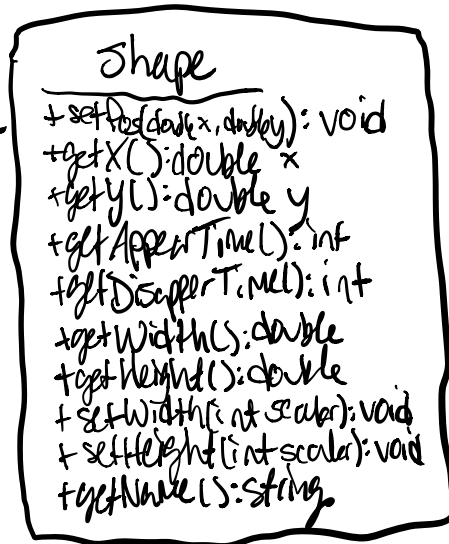 Shape
+setPos(double x, double y): void
+getX():double x
+getY():double y
+getAppearTime(): int
+getDisapperTime(): int
+getWidth():double
+getHeight():double
+setWidth(int scalar): void
+setHeight(int scalar): void
+getName():string